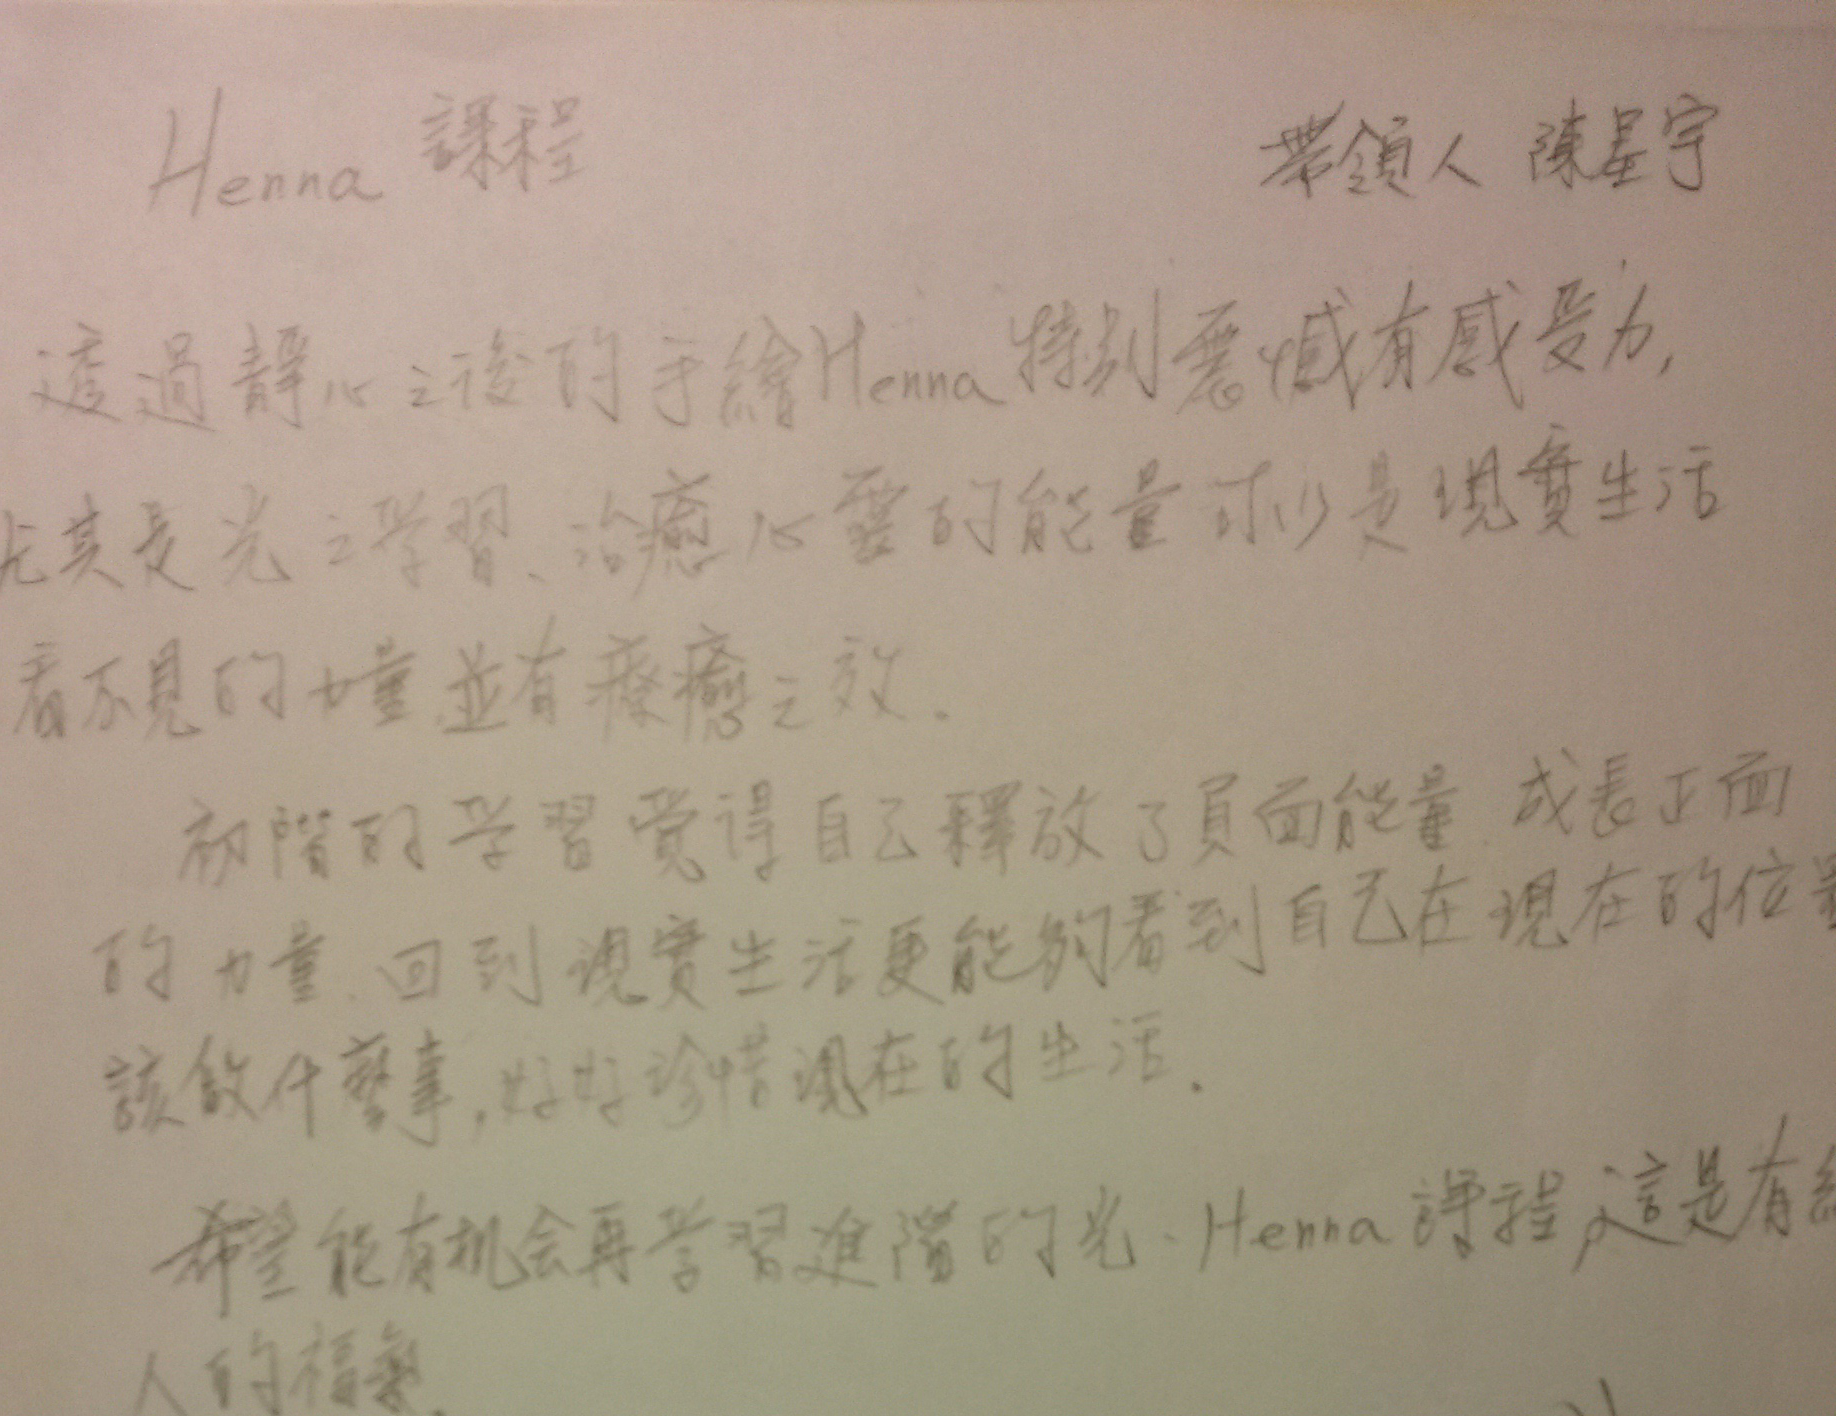 Henna 課程
帶領人 陳星宇
透過靜心之後的手繪Henna特別震憾有感受力,
尤其是光之学習、治癒心靈的能量可以是現實生活
看不見的力量並有療癒之效.
初階的学習覺得自己釋放了負面能量.成長正面
的力量.回到現實生活更能夠看到自己在現在的位置
該做什麼事,好好珍惜現在的生活.
希望能有机会再学習進階的光.Henna課程,這是有
人的福氣.